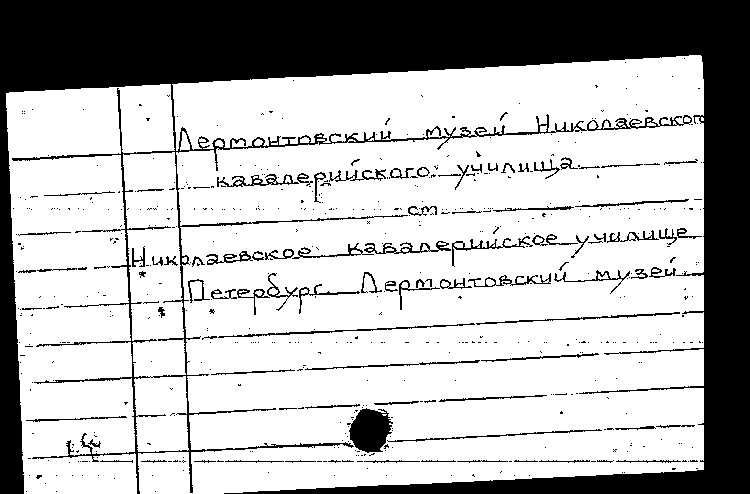 Лермонтовский музей Николаевского
кавалерийского училища
см.
Николаевское кавалерийское училище
Петербург. Лермонтовский музей.